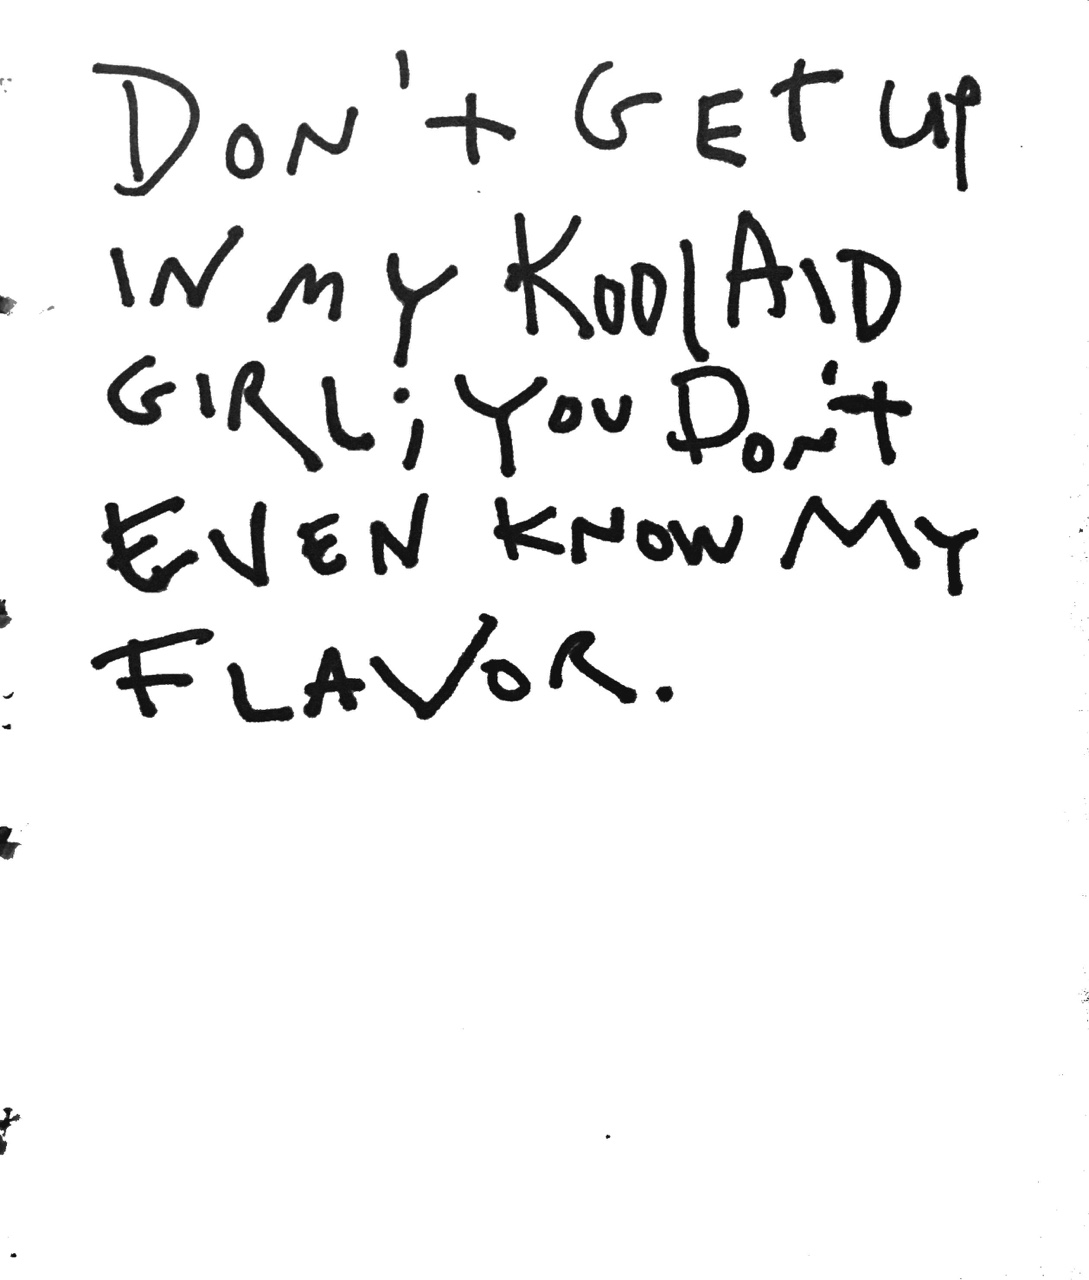 DON't GET UP
IN MY KOOlAID
GIRL; YOU DON't
EVEN KNOW MY
FLAVOR.